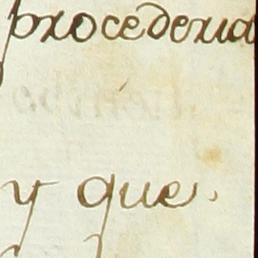 procederia
y que.